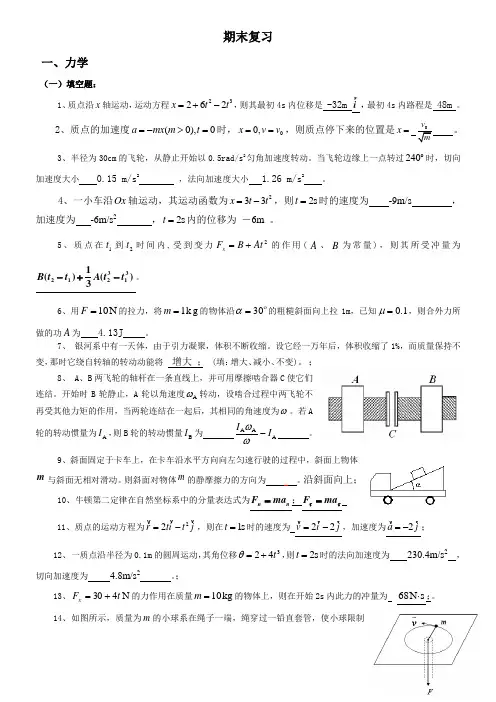 期末复习
一、力学
（一）填空题：
1、质点沿x轴运动，运动方程x=2+6t²−2t³，则其最初4s内位移是 -32m i，最初4s内路程是 48m 。
2、质点的加速度a=−mx(m>0),t=0时，x=0,v=v₀，则质点停下来的位置是x= v₀/√m 。
3、半径为30cm的飞轮，从静止开始以0.5rad/s²匀角加速度转动。当飞轮边缘上一点转过240°时，切向
加速度大小 0.15 m/s² ，法向加速度大小 1.26 m/s² 。
4、一小车沿Ox轴运动，其运动函数为x=3t−3t²，则t=2s时的速度为 -9m/s ，
加速度为 -6m/s² ，t=2s内的位移为 －6m 。
5、质点在t₁到t₂时间内，受到变力Fₓ=B+At²的作用（A、B为常量），则其所受冲量为
B(t₂−t₁)+1/3 A(t₂³−t₁³)。
6、用F=10N的拉力，将m=1kg的物体沿α=30°的粗糙斜面向上拉1m，已知μ=0.1，则合外力所
做的功A为 4.13J 。
7、 银河系中有一天体，由于引力凝聚，体积不断收缩。设它经一万年后，体积收缩了1%，而质量保持不
变，那时它绕自转轴的转动动能将 增大 ; (填：增大、减小、不变)。 ;
8、 A、B两飞轮的轴杆在一条直线上，并可用摩擦啮合器C使它们
连结。开始时B轮静止，A轮以角速度ω_A转动，设啮合过程中两飞轮不
再受其他力矩的作用，当两轮连结在一起后，其相同的角速度为ω。若A
轮的转动惯量为I_A，则B轮的转动惯量I_B为 I_Aω_A/ω − I_A 。
A
B
C
9、斜面固定于卡车上，在卡车沿水平方向向左匀速行驶的过程中，斜面上物体
m 与斜面无相对滑动。则斜面对物体m的静摩擦力的方向为 。沿斜面向上;
10、牛顿第二定律在自然坐标系中的分量表达式为Fₙ=maₙ; F_τ=ma_τ
11、质点的运动方程为r=2ti−t²j，则在t=1s时的速度为 v=2i−2j，加速度为a=−2j;
12、一质点沿半径为0.1m的圆周运动，其角位移θ=2+4t³，则t=2s时的法向加速度为 230.4m/s²，
切向加速度为 4.8m/s² 。;
13、Fₓ=30+4t N的力作用在质量m=10kg的物体上，则在开始2s内此力的冲量为 68N·s;。
14、如图所示，质量为m的小球系在绳子一端，绳穿过一铅直套管，使小球限制
v
m
r
F